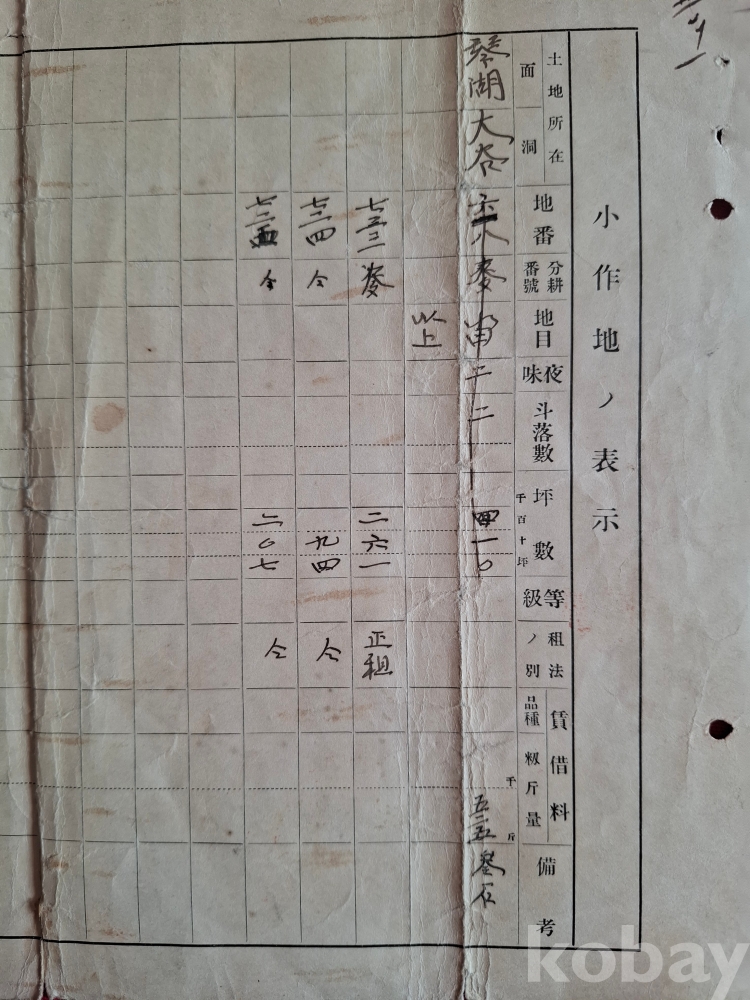 小作地ノ表示
土地所在
面
洞
地番
分耕番號
地目
夜味
斗落數
坪數
千百十坪
等級
租法ノ別
賃借料
品種
籾斤量
千
斤
備考
琴湖 大谷 八 麥 畓 二 二 四一〇 五二五
以上
七三三 麥 二六一 正租
七三四 仝 九四 仝
仝 二〇七 仝
kobay